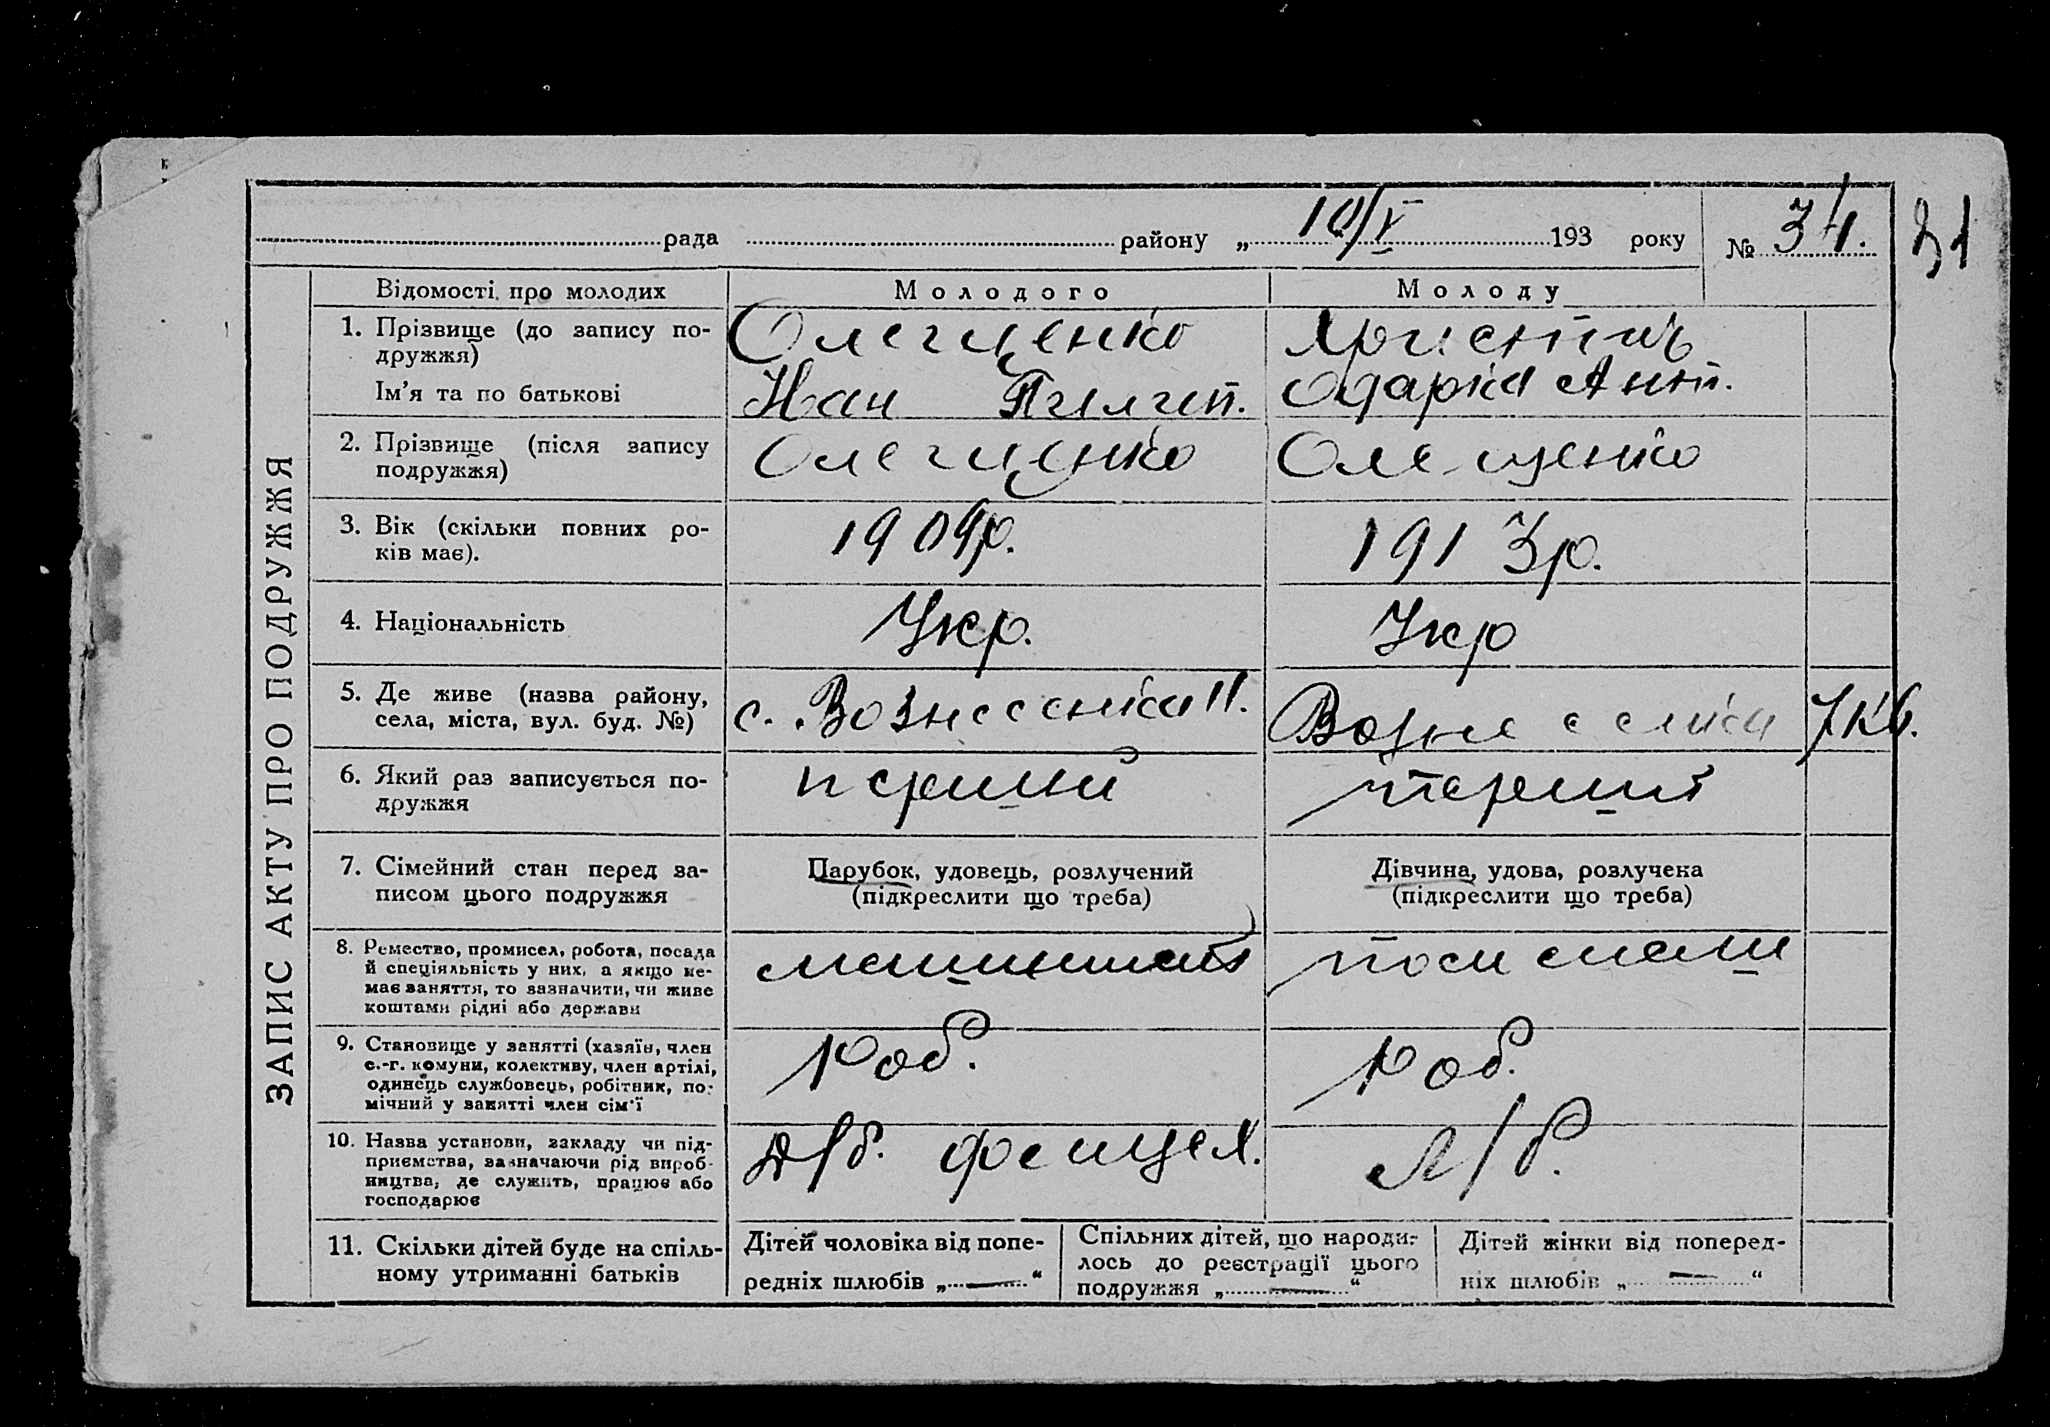 рада району „ 10/V 193 року № 34. 31
ЗАПИС АКТУ ПРО ПОДРУЖЖЯ
Відомості про молодих Молодого Молоду
1. Прізвище (до запису по-
дружжя)
Олещенко
Ім’я та по батькові
Иван Пилип. Одарка Ант.
2. Прізвище (після запису
подружжя)
Олещенко Олещенко
3. Вік (скільки повних ро-
ків має).
1909р. 1913р.
4. Національність Укр. Укр
5. Де живе (назва району,
села, міста, вул. буд. №)
с. Вознесенка Вознесенка
6. Який раз записується по-
дружжя
перший перший
7. Сімейний стан перед за-
писом цього подружжя
Парубок, удовець, розлучений
(підкреслити що треба)
Дівчина, удова, розлучена
(підкреслити що треба)
8. Ремество, промисел, робота, посада
й спеціяльність у них, а якщо не-
має заняття, то зазначити, чи живе
коштами рідні або держави
машинист
9. Становище у занятті (хазяїн, член
с.-г. комуни, колективу, член артілі,
одинець службовець, робітник, по-
мічний у занятті член сім’ї
Роб. Роб.
10. Назва установи, закладу чи під-
приємства, зазначаючи рід вироб-
ництва, де служить, працює або
господарює
11. Скільки дітей буде на спіль-
ному утриманні батьків
Дітей чоловіка від попе-
редніх шлюбів „ — “
Спільних дітей, що народи-
лось до реєстрації цього
подружжя „ — “
Дітей жінки від поперед-
ніх шлюбів „ — “